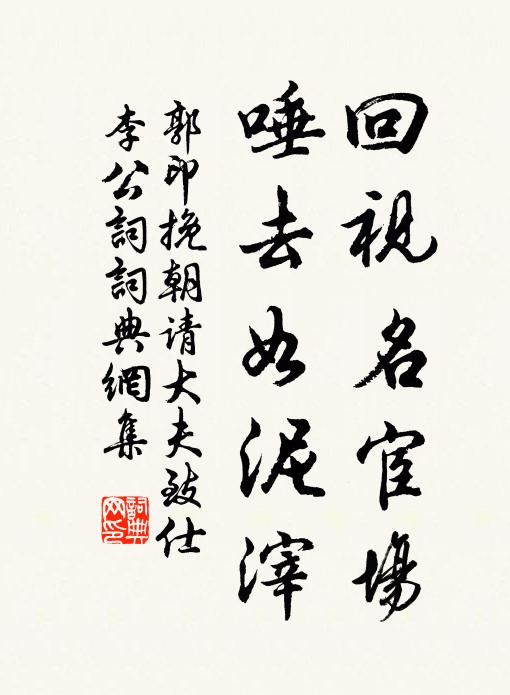 回視名宦場
唾去如泥滓
郭印挽朝请大夫致仕
李公詞詞典網集
詞典网印